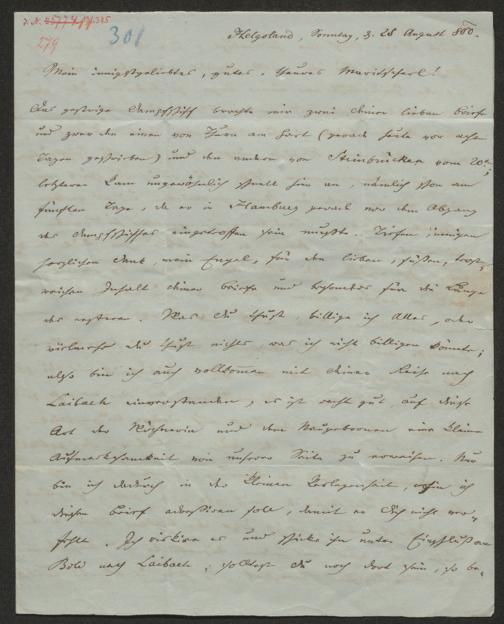 301
279
Helgoland, Sonntag, d. 28 August 880.
Mein innigstgeliebtes, gutes, theures Mariescherl!
Das gestrige Dampfschiff brachte mir zwei deiner lieben Briefe
und zwar den einen von Thurn am Hart (gerade heute vor acht
Tagen geschrieben) und den andern von Steinbrücken vom 20t;
letzterer kam ungewöhnlich schnell hier an, nämlich schon am
fünften Tage, da er in Hamburg gerade vor dem Abgang
des Dampfschiffes eingetroffen sein mußte. Tiefen innigen
herzlichen Dank, mein Engel, für den lieben, süßen, trost-
reichen Inhalt deiner Briefe und besonders für die Länge
des ersteren. Was du thust, billige ich Alles, oder
vielmehr du thust nichts, was ich nicht billigen könnte;
also bin ich auch vollkommen mit deiner Reise nach
Laibach einverstanden, es ist recht gut auf diese
Art der Wöchnerin und dem Neugebornen eine kleine
Aufmerksamkeit von unserer Seite zu erweisen. Nur
bin ich dadurch in der kleinen Verlegenheit, wohin ich
diesen Brief adressiren soll, damit er Dich nicht ver-
fehle. Ich riskire es und schicke ihn unter Einschluß an
nach Laibach; solltest du noch dort sein, so be-